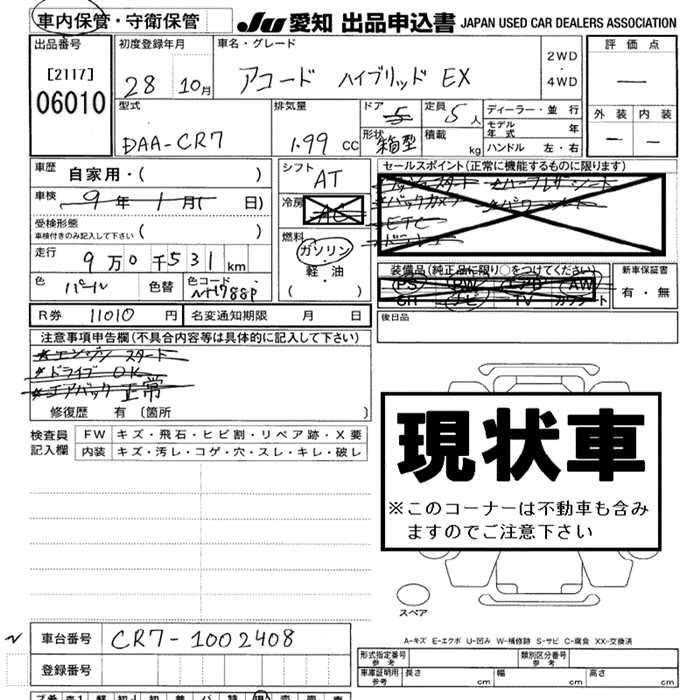 車内保管・守衛保管 JU 愛知 出品申込書 JAPAN USED CAR DEALERS ASSOCIATION
出品番号 初度登録年月 車名・グレード 2WD ・ 4WD 評価点
[2117] 28 10月 アコード ハイブリッド EX ー
06010
型式 排気量 ドア 5 定員 5人 ディーラー・並行 外装 内装
DAA-CR7 1.99 CC 形状 箱型 積載 kg モデル年式 年 ー ー
ハンドル 左・右
車歴 自家用・( ) シフト AT セールスポイント(正常に機能するものに限ります)
車検 9年 1月( 日) 冷房 AC
バックカメラ
ETC
受検形態 車検付きのみ記入して下さい ( ) 燃料 ガソリン・軽・油 ( )
走行 9万0千531km 装備品(純正品に限り○をつけてください) 新車保証書
色 パール 色替 色コード NH788P PS PW エアB AW 有・無
SH ナビ TV カワシート
R券 11010 円 名変通知期限 月 日 後日品
注意事項申告欄(不具合内容等は具体的に記入して下さい)
*エンジンスタート
*ドライブ OK
*エアバック正常
修復歴 有 〔箇所 〕
検査員記入欄 FW キズ・飛石・ヒビ割・リペア跡・X要
内装 キズ・汚レ・コゲ・穴・スレ・キレ・破レ
現状車
※このコーナーは不動車も含み
ますのでご注意下さい
スペア
A-キズ E-エクボ U-凹み W-補修跡 S-サビ C-腐食 XX-交換済
車台番号 CR7-1002408
登録番号
形式指定番号 参考 類別区分番号 参考
車庫証明用 参考 長さ cm 幅 cm 高さ cm